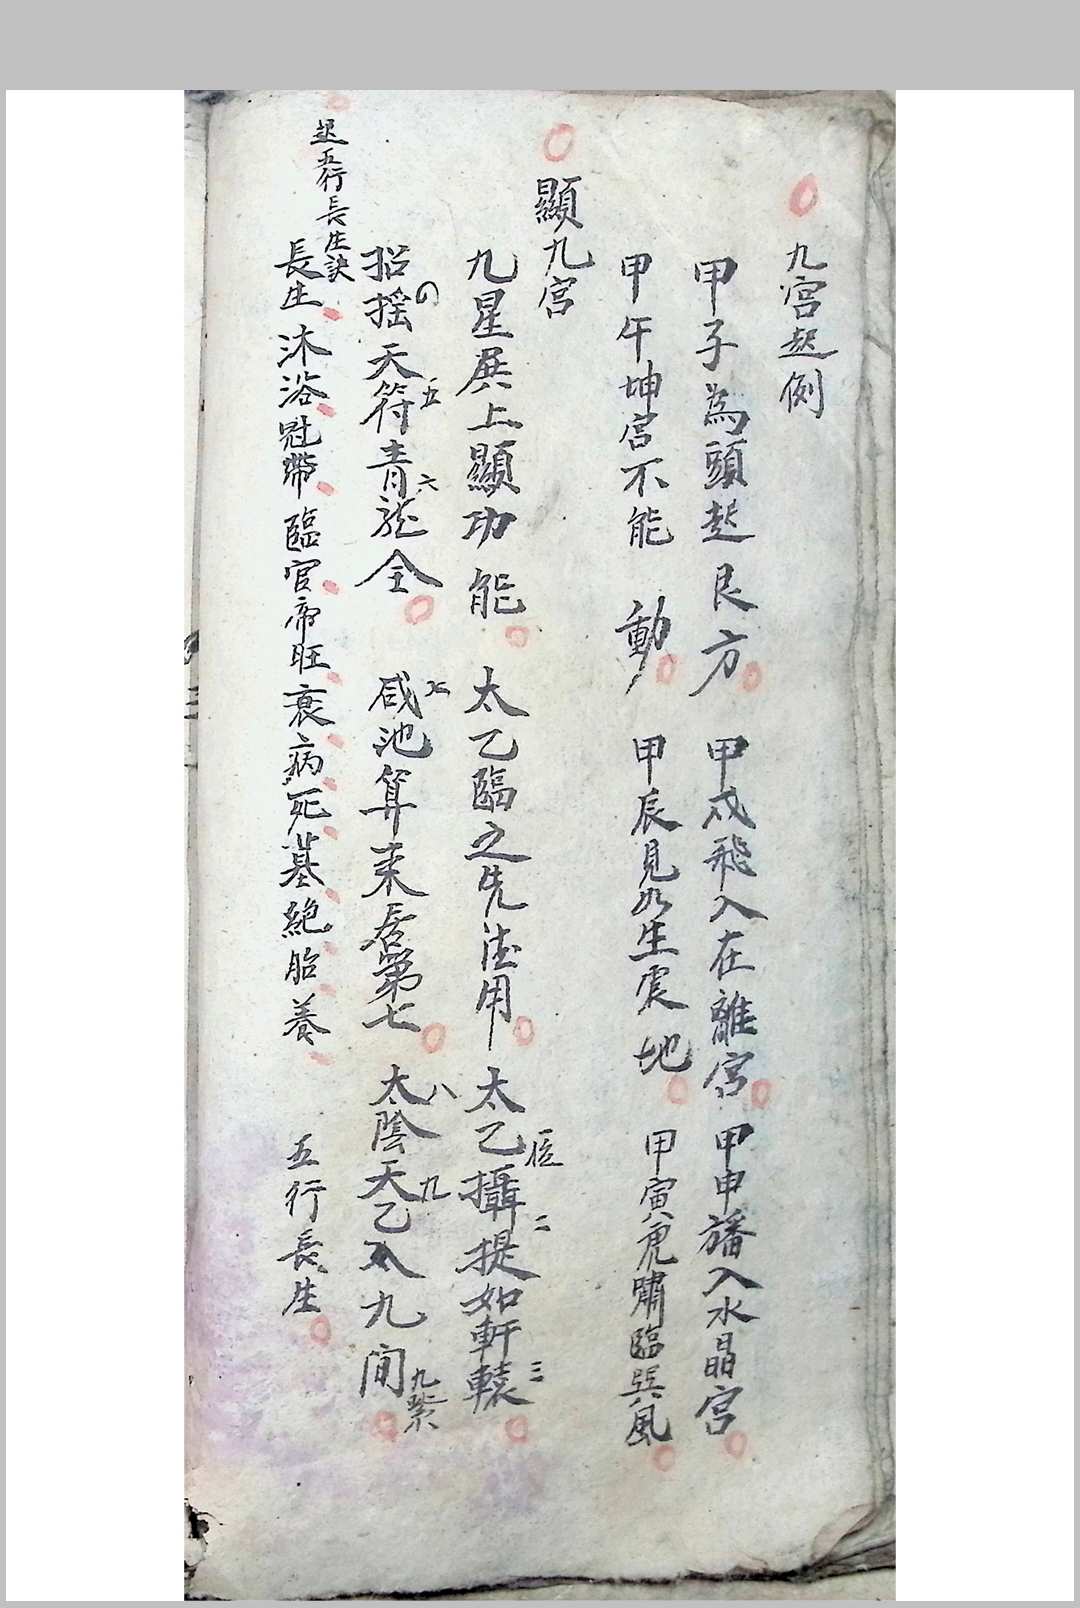 九宮起例
甲子為頭起艮方 甲戌飛入在離宮 甲申旛入水晶宮
甲午坤宮不能動 甲辰見如生震地 甲寅虎嘯臨巽風
顯九宮
九星展上顯功能 太乙臨之先法用 太乙攝提如軒轅
一 二 三
招搖天符青龍全 咸池算来居第七 太陰天乙入九间
五 六 七 八 九 九紫
起五行長生訣
長生 沐浴 冠帶 臨官 帝旺 衰 病 死 墓 絶 胎 養 五行長生